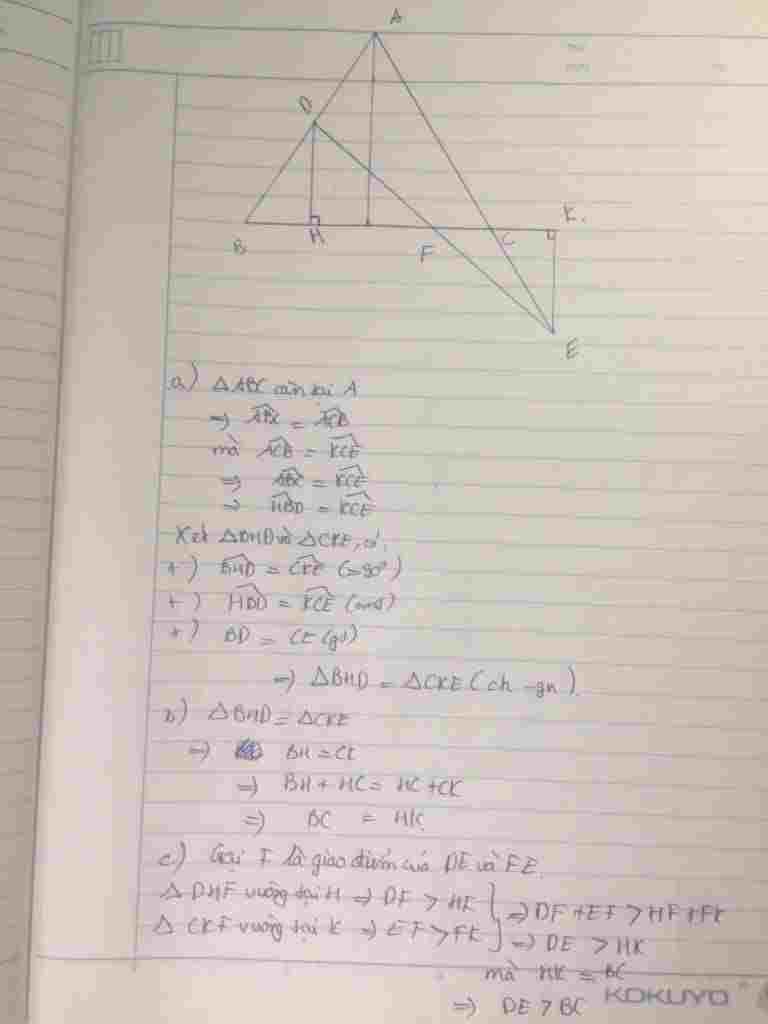 A
D
B
H
F
C
K.
E
a) △ABC cân tại A
=> ABC = ACB
mà ACB = KCE
=> ABC = KCE
=> HBD = KCE
Xét △BHD và △CKE, có:
+) BHD = CKE (=90°)
+) HBD = KCE (cmt)
+) BD = CE (gt)
=> △BHD = △CKE (ch-gn)
b) △BHD = △CKE
=> BH = CK
=> BH + HC = HC + CK
=> BC = HK
c) Gọi F là giao điểm của DE và
△ DHF vuông tại H => DF > HF
=> DF + EF > HF + FK
△ CKF vuông tại K => EF > FK
=> DE > HK
mà HK = BC
=> DE > BC
KOKUYO